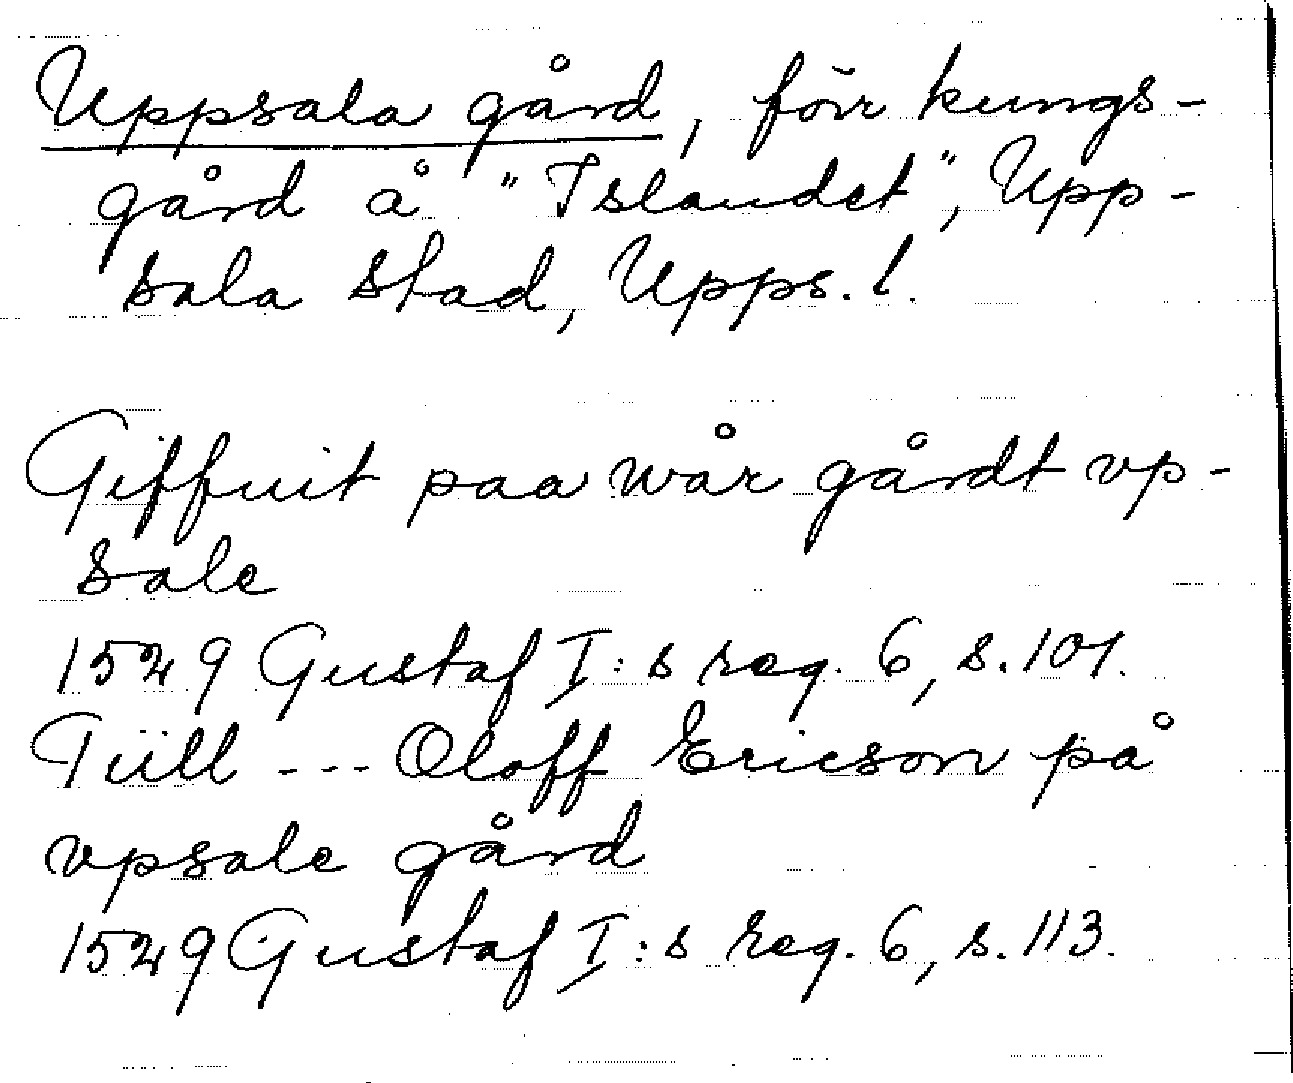 Uppsala gård, förr kungs-
gård å "Islandet", Upp-
sala stad, Upps. l.
Giffuit paa wår gårdt vp-
sale
1529 Gustaf I:s reg. 6, s. 101.
Tiill --- Oloff Ericson på
vpsale gård
1529 Gustaf I:s reg. 6, s. 113.